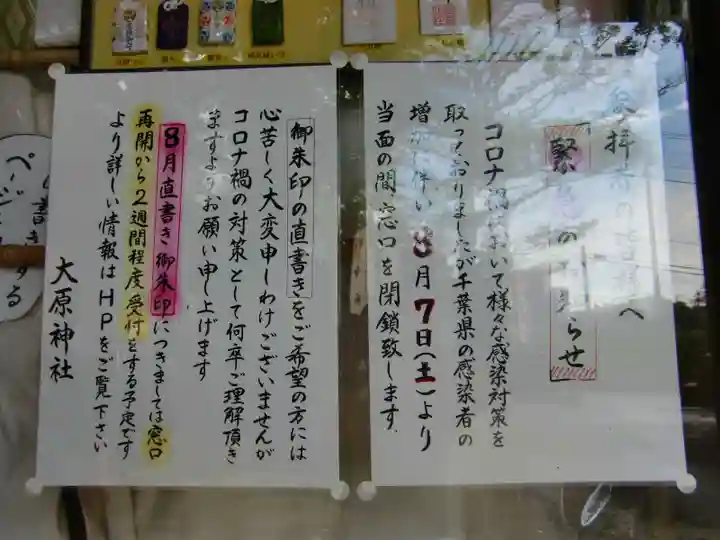 参拝者の皆様へ
「緊急のお知らせ」
コロナ禍において様々な感染対策を
取っておりましたが千葉県の感染者の
増加に伴い8月7日(土)より
当面の間、窓口を閉鎖致します。
御朱印の直書きをご希望の方には
心苦しく大変申しわけございませんが
コロナ禍の対策として何卒ご理解頂き
ますようお願い申し上げます
8月直書き御朱印につきましては窓口
再開から2週間程度受付をする予定です
より詳しい情報はHPをご覧下さい
大原神社